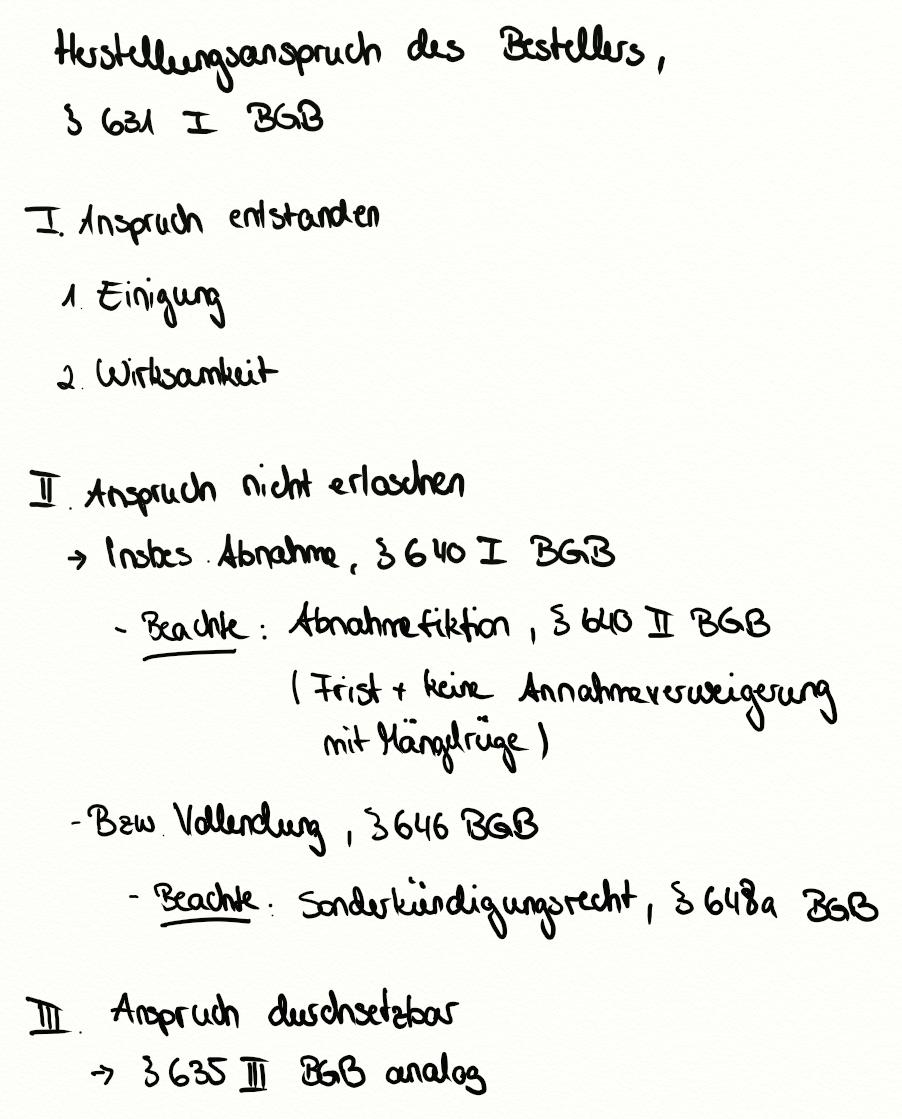 Herstellungsanspruch des Bestellers,
§ 631 I BGB
I. Anspruch entstanden
1. Einigung
2. Wirksamkeit
II. Anspruch nicht erloschen
→ Insbes. Abnahme, § 640 I BGB
- Beachte: Abnahmefiktion, § 640 II BGB
(Frist + keine Annahmeverweigerung
mit Mängelrüge)
- Bzw. Vollendung, § 646 BGB
- Beachte: Sonderkündigungsrecht, § 648a BGB
III. Anspruch durchsetzbar
→ § 635 III BGB analog